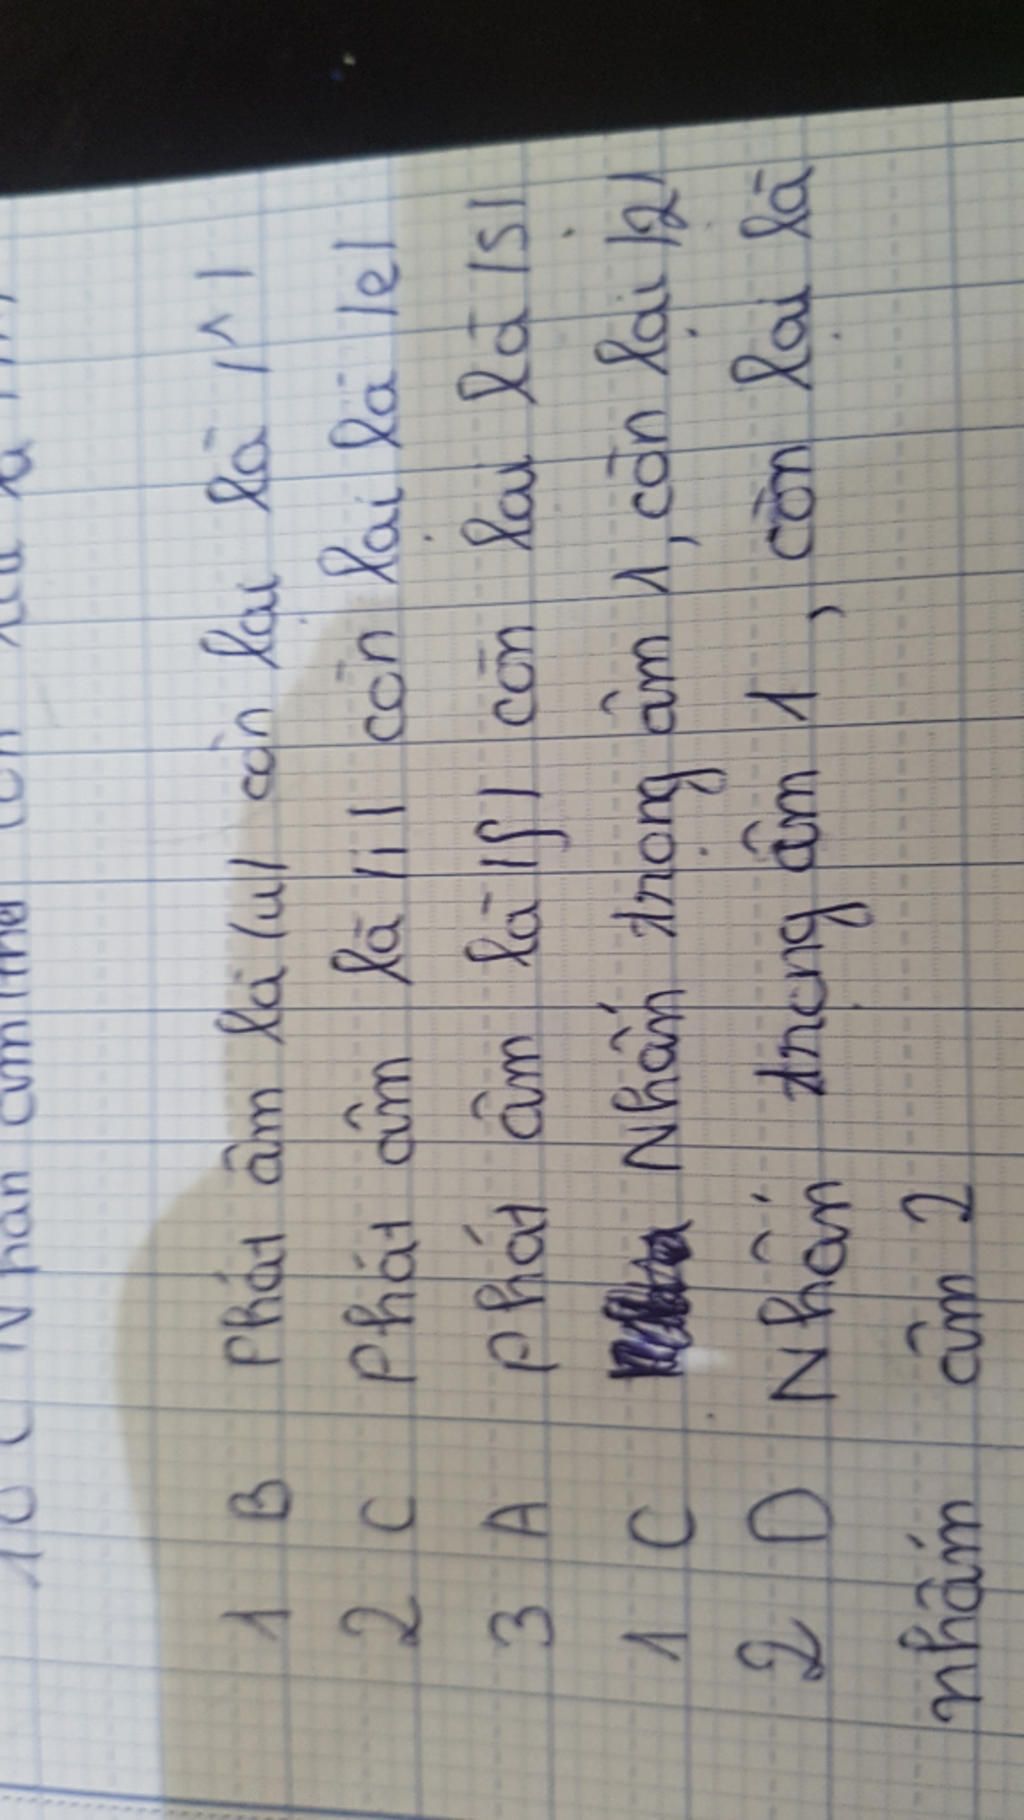 10 C Nhấn âm
1 B Phát âm là /u/ còn lại là /^/
2 C Phát âm là /i/ còn lại là /e/
3 A Phát âm là /ʃ/ còn lại là /s/
1 C Nhấn trọng âm 1, còn lại /2/
2 D Nhấn trọng âm 1, còn lại là
nhấm âm 2